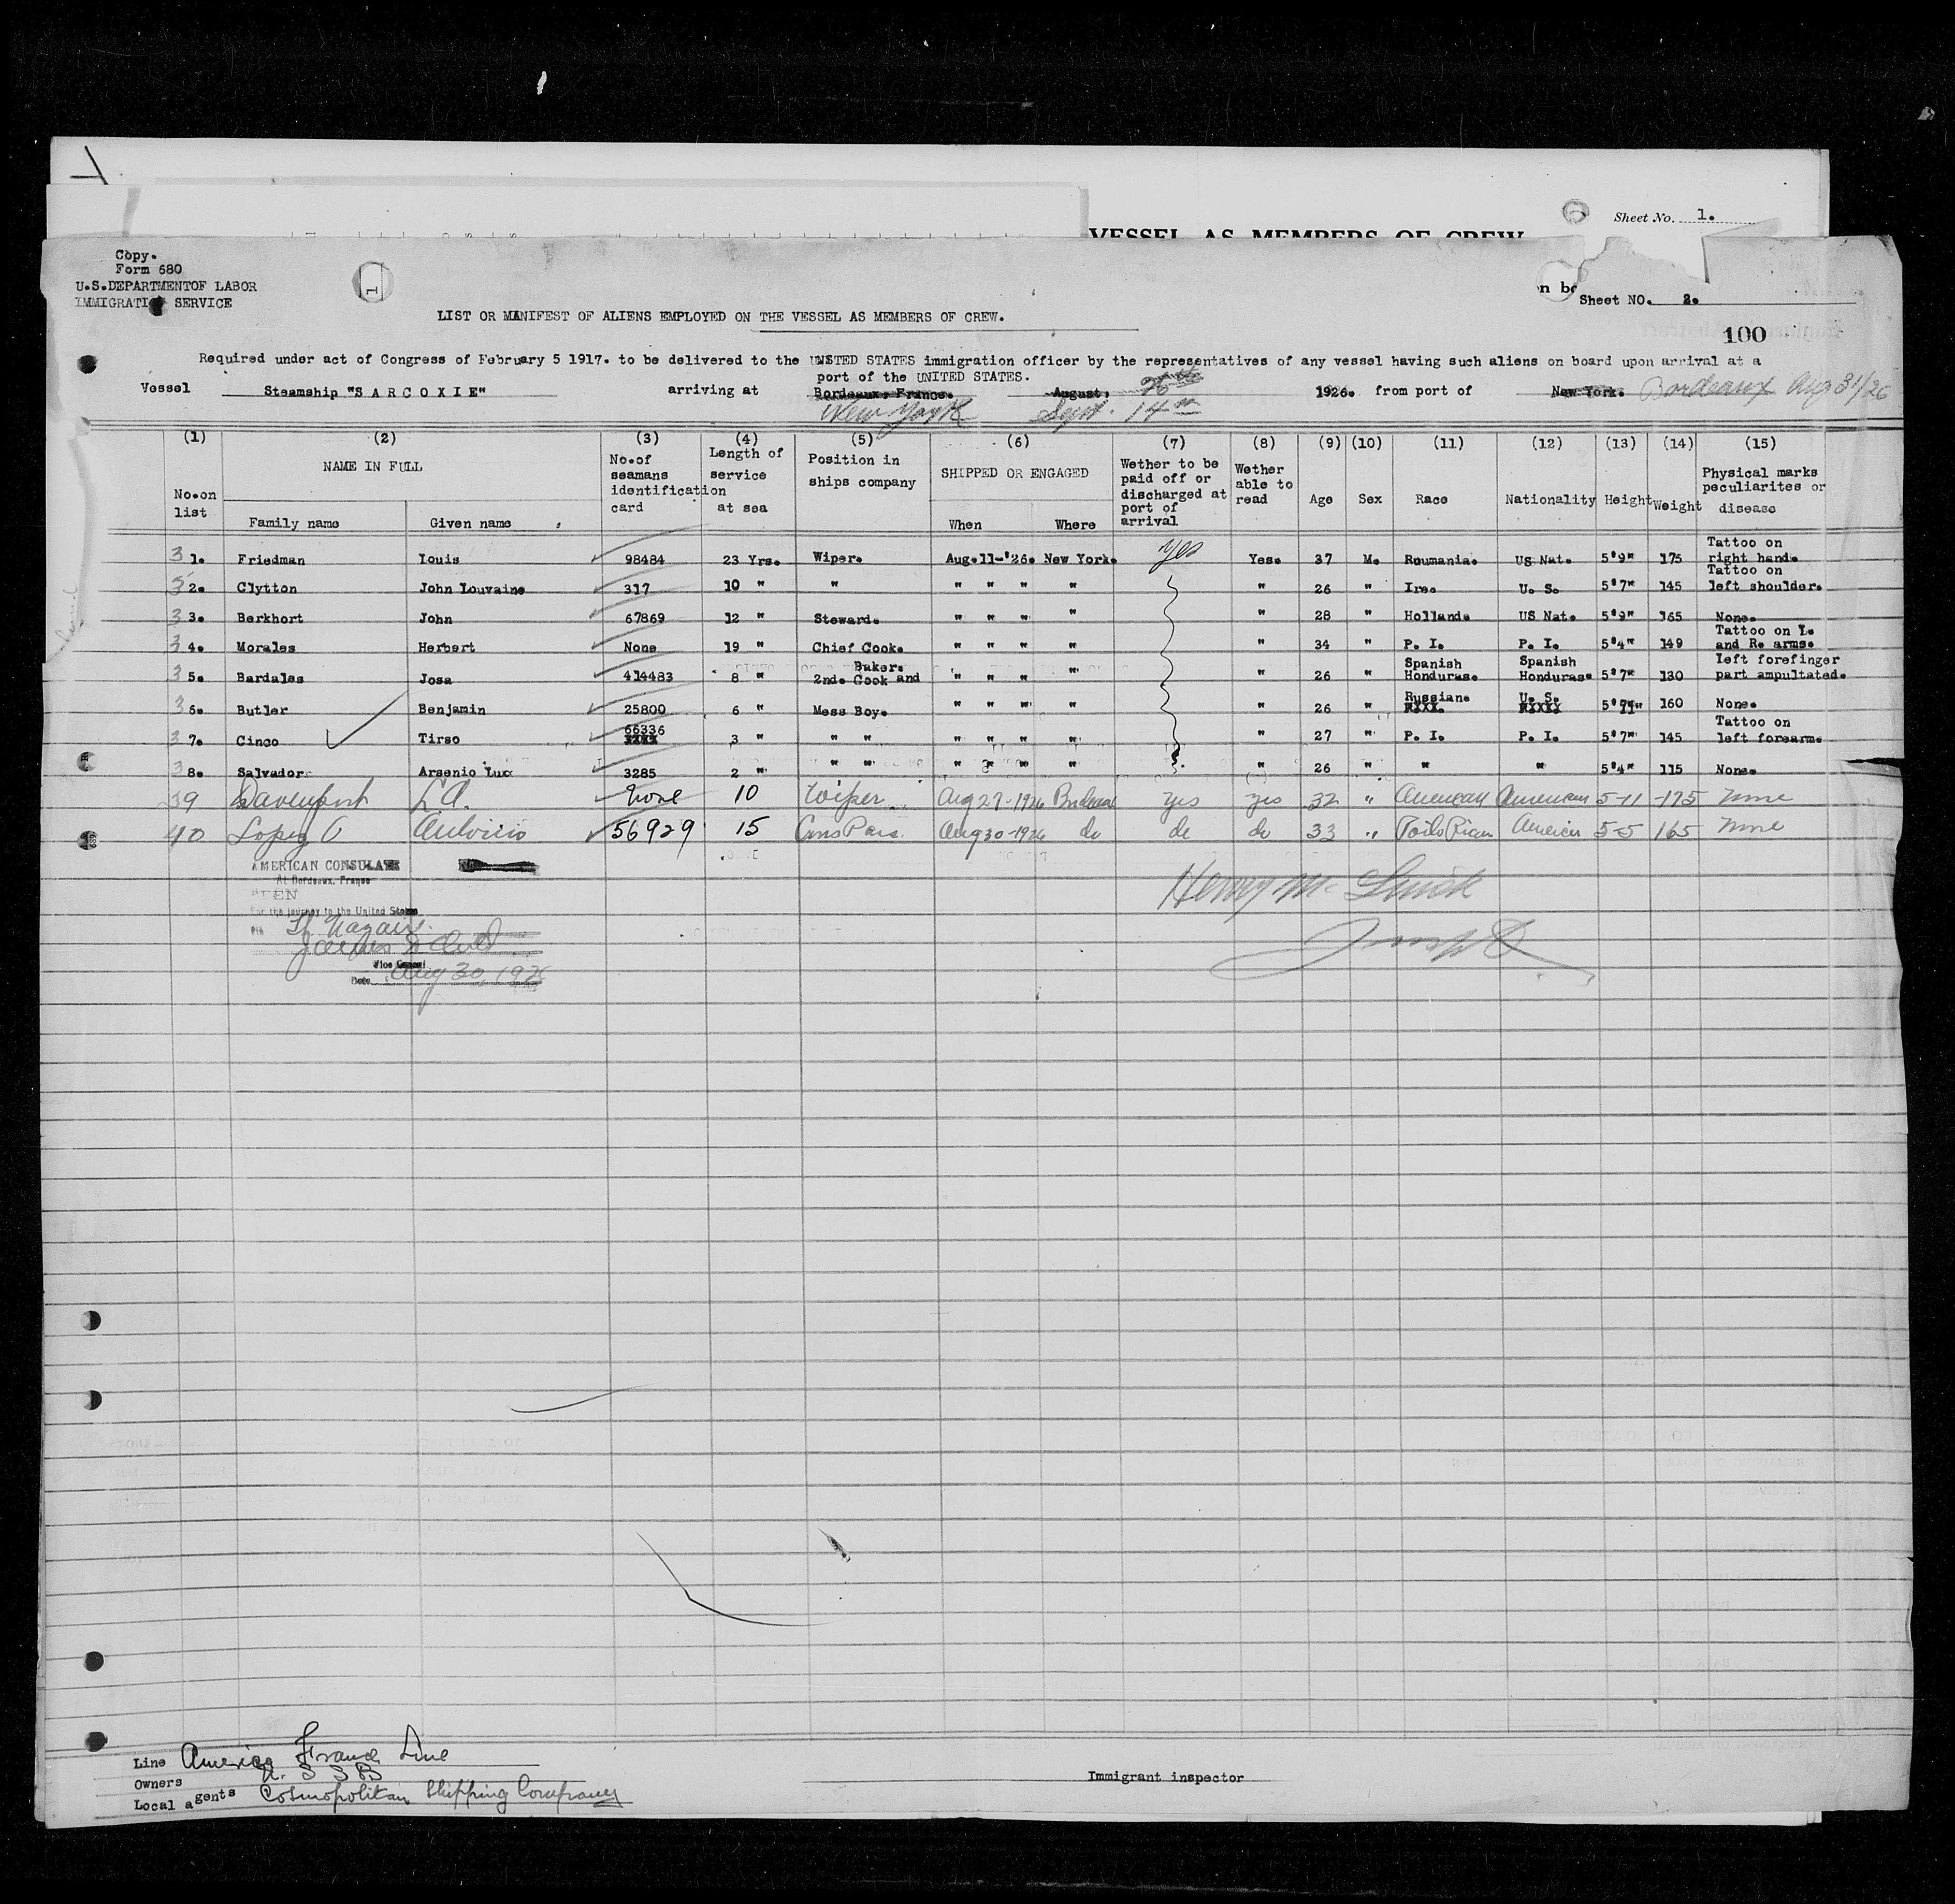 Sheet No. 1.
VESSEL AS MEMBERS OF CREW
Copy.
Form 680
U.S.DEPARTMENTOF LABOR
IMMIGRATION SERVICE
1
Sheet NO. 2.
LIST OR MANIFEST OF ALIENS EMPLOYED ON THE VESSEL AS MEMBERS OF CREW.
100
Required under act of Congress of February 5 1917. to be delivered to the UNITED STATES immigration officer by the representatives of any vessel having such aliens on board upon arrival at a
port of the UNITED STATES.
Vessel Steamship "S A R C O X I E" arriving at Bordeaux. France. August, 26th 1926. from port of New York. Bordeaux Aug 31/26
New York Sept. 14th
(1) (2) (3) (4) (5) (6) (7) (8) (9) (10) (11) (12) (13) (14) (15)
No.on list NAME IN FULL Family name Given name No.of seamans identification card Length of service at sea Position in ships company SHIPPED OR ENGAGED When Where Wether to be paid off or discharged at port of arrival Wether able to read Age Sex Race Nationality Height Weight Physical marks peculiarites or disease
31. Friedman Louis 98484 23 Yrs. Wiper. Aug.11-'26. New York. Yes Yes. 37 M. Roumania. US Nat. 5'9" 175 Tattoo on right hand.
32. Clytton John Louvaine 317 10 " " " " " " " 26 " Ire. U. S. 5'7" 145 Tattoo on left shoulder.
33. Berkhort John 67869 12 " Steward. " " " " " 28 " Holland. US Nat. 5'9" 165 None.
34. Morales Herbert None 19 " Chief Cook. " " " " " 34 " P. I. P. I. 5'4" 149 Tattoo on L. and R. arms.
35. Bardales Jose 414483 8 " 2nd. Cook and Baker. " " " " " 26 " Spanish Honduras. Spanish Honduras. 5'7" 130 left forefinger part ampultated.
36. Butler Benjamin 25800 6 " Mess Boy. " " " " " 26 " Russian. U. S. 5' 160 None.
37. Cinco Tirso 66336 3 " " " " " " " " 27 " P. I. P. I. 5'7" 145 Tattoo on left forearm.
38. Salvador Arsenio Lux 3285 2 " " " " " " " 26 " " " 5'4" 115 None.
39 Davenport L A. None 10 Wiper Aug 27-1926 Bordeaux yes yes 32 " American American 5-11 -175 None
40 Lopez 56929 15 Aug 30-1926 do do do 33 " Porto Rican American 5-5 165 None
AMERICAN CONSULATE
At Bordeaux, France
SEEN
For the journey to the United States
Vice Consul
Date Aug 30, 1926
Line America France Line
Owners U. S S B
Local agents Cosmopolitan Shipping Company
Immigrant inspector